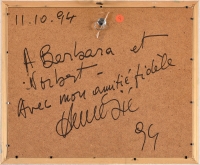 11.10.94
A Barbara et
Norbert -
Avec mon amitié fidèle
94